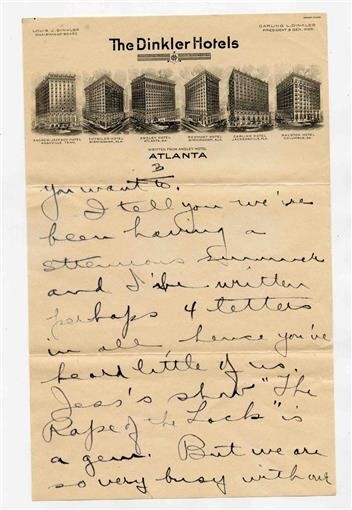 LOUIS J. DINKLER
CHAIRMAN OF BOARD
CARLING L. DINKLER
PRESIDENT & GEN. MGR.
The Dinkler Hotels
ANDREW JACKSON HOTEL
NASHVILLE, TENN.
TUTWILER HOTEL
BIRMINGHAM, ALA.
ANSLEY HOTEL
ATLANTA, GA.
REDMONT HOTEL
BIRMINGHAM, ALA.
CARLING HOTEL
JACKSONVILLE, FLA.
RALSTON HOTEL
COLUMBUS, GA.
WRITTEN FROM ANSLEY HOTEL
ATLANTA
3
you want to.
I tell you we've
been having a
strenuous summer
and I've written
perhaps 4 letters
in all hence you've
heard little of us.
Jess's show "The
Rape of the Lock" is
a gem. But we are
so very busy with our